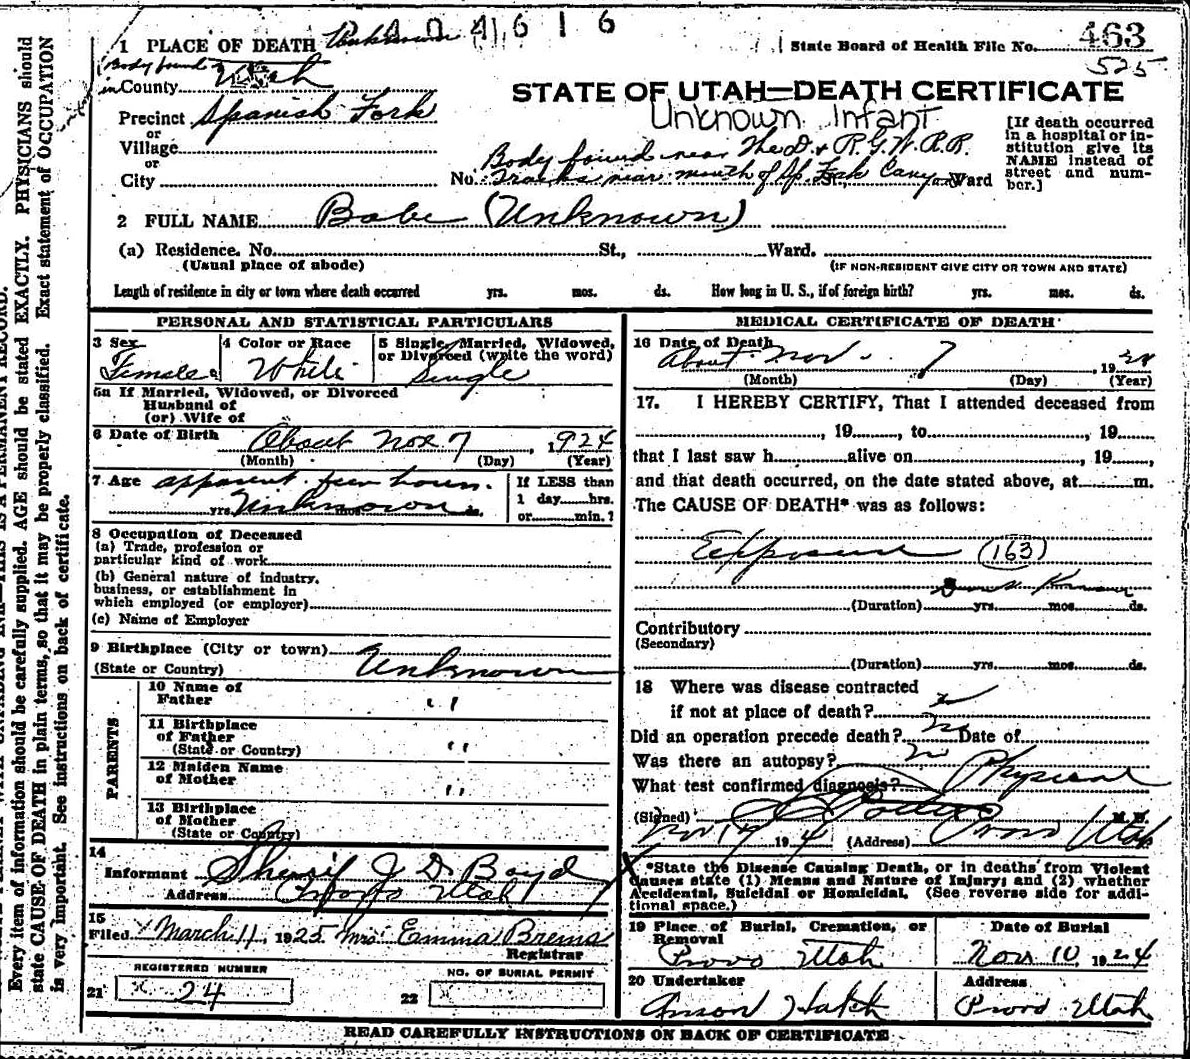 A 0 4 1 6 1 6
1 PLACE OF DEATH Unknown
State Board of Health File No. 463
525
Body found
in County Utah
STATE OF UTAH—DEATH CERTIFICATE
Unknown Infant
Precinct Spanish Fork
or
Village
or
City
Body found near The D. & R.G.W. R.R.
No. Tracks near mouth of Sp. Fork Canyon St., Ward
[If death occurred
in a hospital or in-
stitution give its
NAME instead of
street and num-
ber.]
2 FULL NAME Babe (Unknown)
(a) Residence. No. St., Ward.
(Usual place of abode)
(IF NON-RESIDENT GIVE CITY OR TOWN AND STATE)
Length of residence in city or town where death occurred yrs. mos. ds. How long in U. S., if of foreign birth? yrs. mos. ds.
PERSONAL AND STATISTICAL PARTICULARS
3 Sex
Female
4 Color or Race
White
5 Single, Married, Widowed,
or Divorced (write the word)
Single
5a If Married, Widowed, or Divorced
Husband of
(or) Wife of
6 Date of Birth About Nov 7, 1924
(Month) (Day) (Year)
7 Age apparent few hours.
yrs. Unknown mos. ds.
If LESS than
1 day hrs.
or min.?
8 Occupation of Deceased
(a) Trade, profession or
particular kind of work
(b) General nature of industry,
business, or establishment in
which employed (or employer)
(c) Name of Employer
9 Birthplace (City or town)
(State or Country) Unknown
PARENTS
10 Name of
Father " "
11 Birthplace
of Father
(State or Country) " "
12 Maiden Name
of Mother " "
13 Birthplace
of Mother
(State or Country)
14
Informant Sherif J D Boyd
Address Provo Utah
15
Filed March 11, 1925 Mrs Emma Brema
Registrar
REGISTERED NUMBER
21 x 24
NO. OF BURIAL PERMIT
22 x
MEDICAL CERTIFICATE OF DEATH
16 Date of Death
About Nov. 7, 1924
(Month) (Day) (Year)
17. I HEREBY CERTIFY, That I attended deceased from
, 19 , to , 19
that I last saw h alive on , 19 ,
and that death occurred, on the date stated above, at m.
The CAUSE OF DEATH* was as follows:
Exposure (163)
(Duration) yrs. mos. ds.
Contributory
(Secondary)
(Duration) yrs. mos. ds.
18 Where was disease contracted
if not at place of death?
Did an operation precede death? no Date of
Was there an autopsy? no
What test confirmed diagnosis? Physical
(Signed) M. D.
Nov 17 1924 (Address) Provo Utah
*State the Disease Causing Death, or in deaths from Violent
Causes state (1) Means and Nature of Injury; and (2) whether
Accidental, Suicidal or Homicidal. (See reverse side for addi-
tional space.)
19 Place of Burial, Cremation, or
Removal
Provo Utah
Date of Burial
Nov 10 1924
20 Undertaker
Anson Hatch
Address
Provo Utah
READ CAREFULLY INSTRUCTIONS ON BACK OF CERTIFICATE
Every item of information should be carefully supplied. AGE should be stated EXACTLY. PHYSICIANS should
state CAUSE OF DEATH in plain terms, so that it may be properly classified. Exact statement of OCCUPATION
is very important. See instructions on back of certificate.